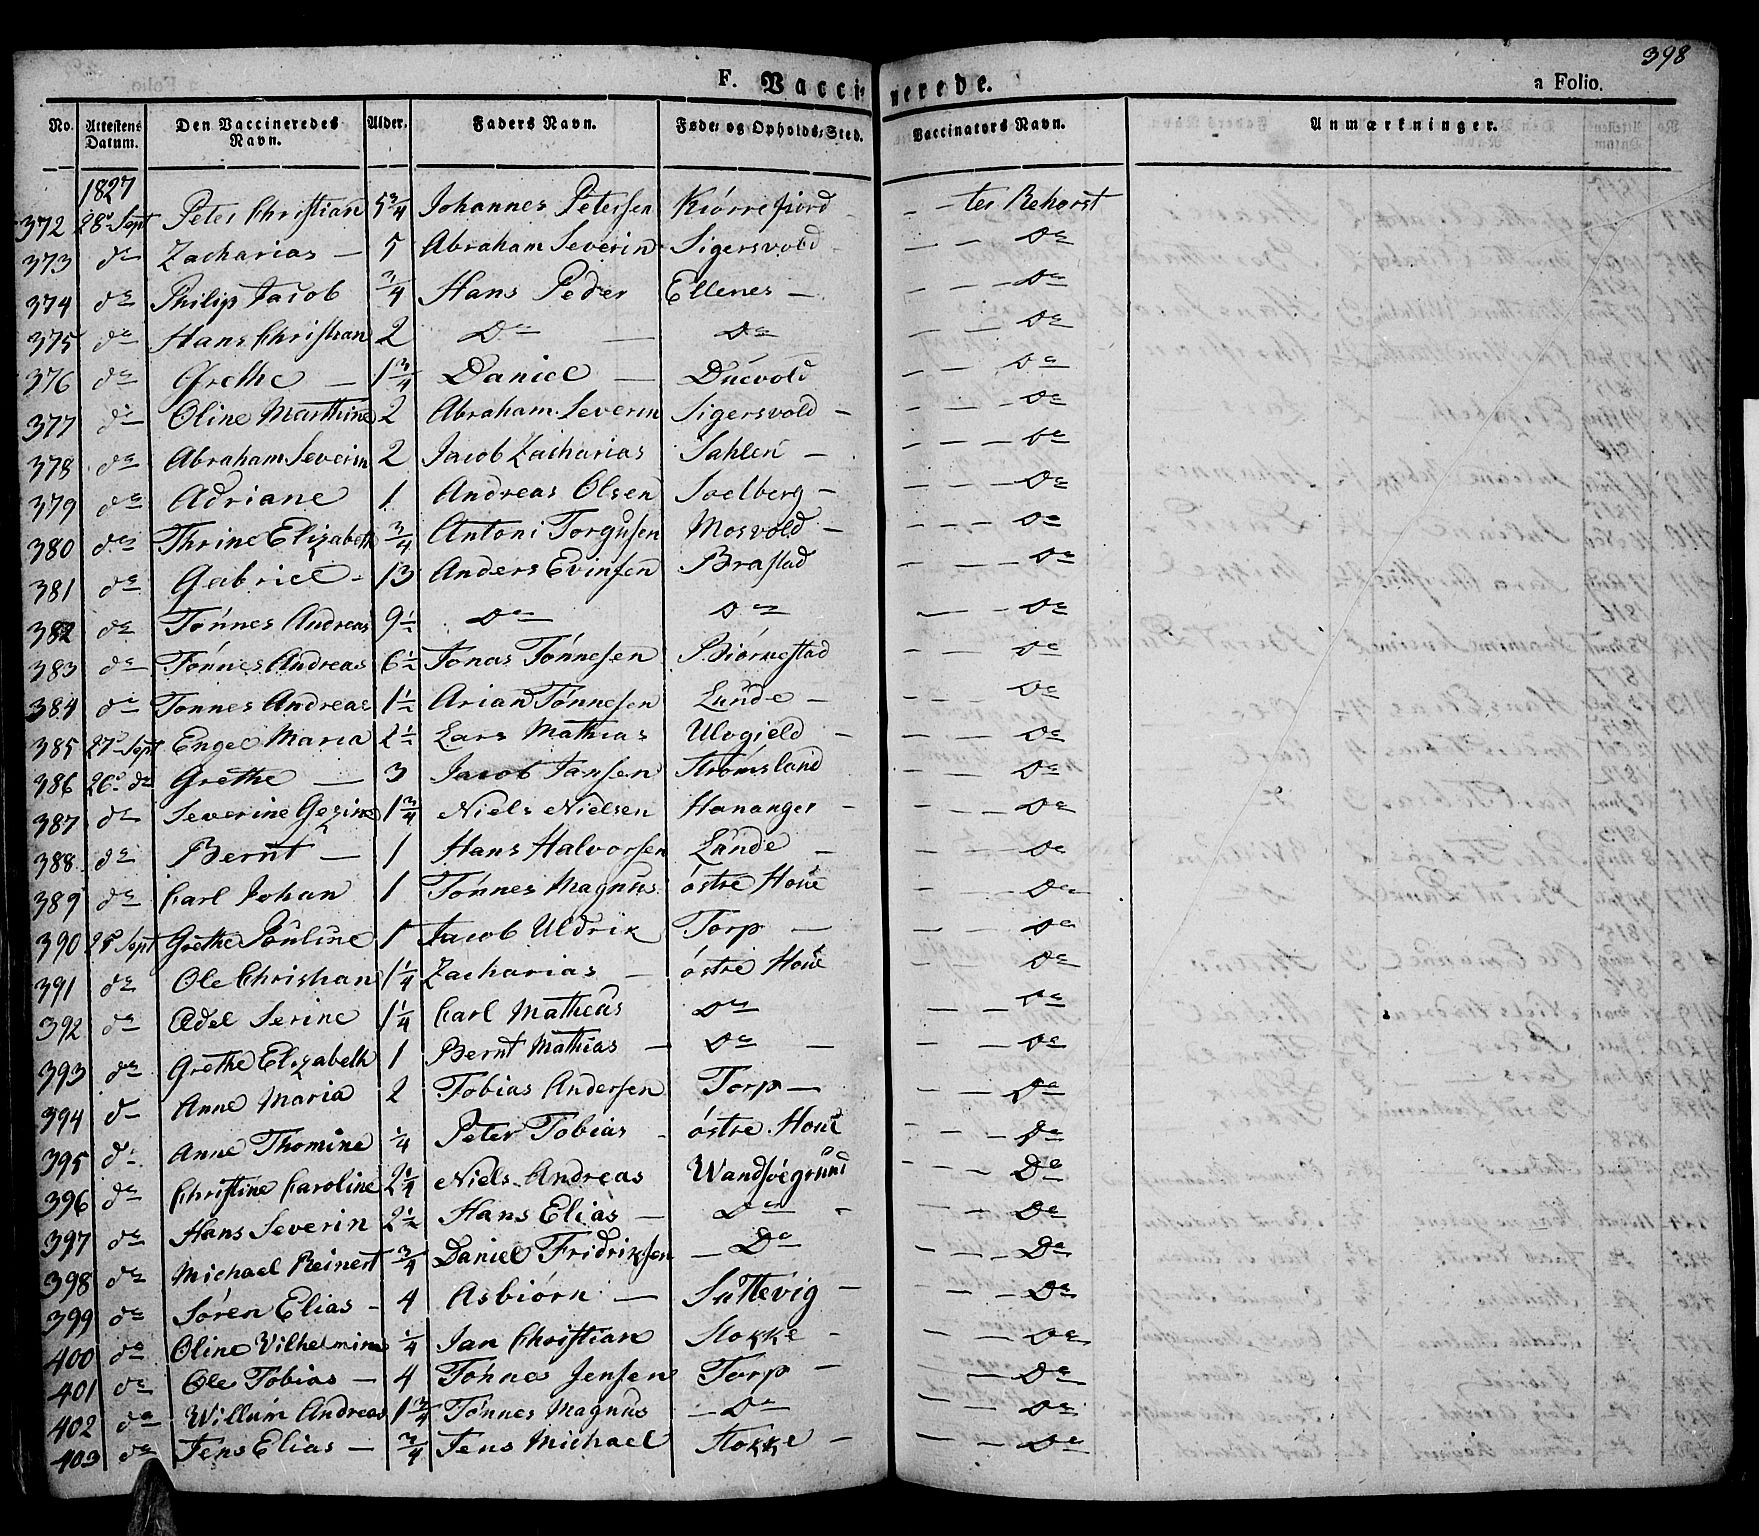 398
F. Vaccinerede. a Folio.
No. Attestens Datum. Den Vaccineredes Navn. Alder. Faders Navn. Føde- og Opholds-Sted. Vaccinators Navn. Anmærkninger.
1827
372 28de Sept Peter Christian 5 3/4 Johannes Petersen Kiörrefiord — ter Rehorst
373 do Zacharias — 5 Abraham Severin Sigersvold — — Do
374 do Philip Jacob 3/4 Hans Peder Ellenes — — — Do
375 do Hans Christian 2 Do — Do — — Do
376 do Grethe — 1 3/4 Daniel — Duevold — — Do
377 do Oline Marthine 2 Abraham Severin Sigersvold — — — Do
378 do Abraham Severin 2 Jacob Zacharias Sahlen — — — — Do
379 do Adriane 1 Andreas Olsen Soelberg — — — Do
380 do Thrine Elizabeth 3/4 Antoni Torgusen Mosvold — — — Do
381 do Gabriel — 13 Anders Evinsen Brastad — — — Do
382 do Tónnes Andreas 9 1/2 Do Do — — — Do
383 do Tónnes Andreas 6 1/2 Jonas Tónnesen Biörnestad — — Do
384 do Tonnes Andreas 1 1/2 Arian Tónnesen Lunde — — — Do
385 27de Sept Engel Maria 2 1/2 Lars Mathias Ulvgield — — — Do
386 26de do Grethe — 3 Jacob Jansen Strömsland — — Do
387 do Severine Gezine 1 3/4 Niels Nielsen Hananger — — — Do
388 do Bernt — 1 Hans Halvorsen Lunde — — — Do
389 do Carl Johan 1 Tónnes Magnus óstre Houe — — — Do
390 25de Sept Grethe Pouline 1 Jacob Uldrik Torp — — — Do
391 do Ole Christian 1 1/4 Zacharias — óstre Houe — — Do
392 do Adel Serine 1 1/4 Carl Matheus Do — — — Do
393 do Grethe Elizabeth 1 Bernt Mathias — Do — — — Do
394 do Anne Maria 2 Tobias Andersen Torp — — — Do
395 do Anne Thomine 1/4 Peter Tobias óstre Houe — — — Do
396 do Christine Caroline 2 1/4 Niels Andreas Wandsöegrund — — — Do
397 do Hans Severin 2 1/2 Hans Elias — Do — — — Do
398 do Michael Reinert 3/4 Daniel Fridriksen — Do — — — Do
399 do Sóren Elias — 4 Asbiórn — Suttevig — — — Do
400 do Oline Vilhelmine 1/4 Jan Christian Stokke — — — Do
401 do Ole Tobias — 4 Tónnes Jensen Torp — — — Do
402 do Willum Andreas 1 3/4 Tónnes Magnus — Do — — — Do
403 do Jens Elias — 3/4 Jens Michael Stokke — — — Do